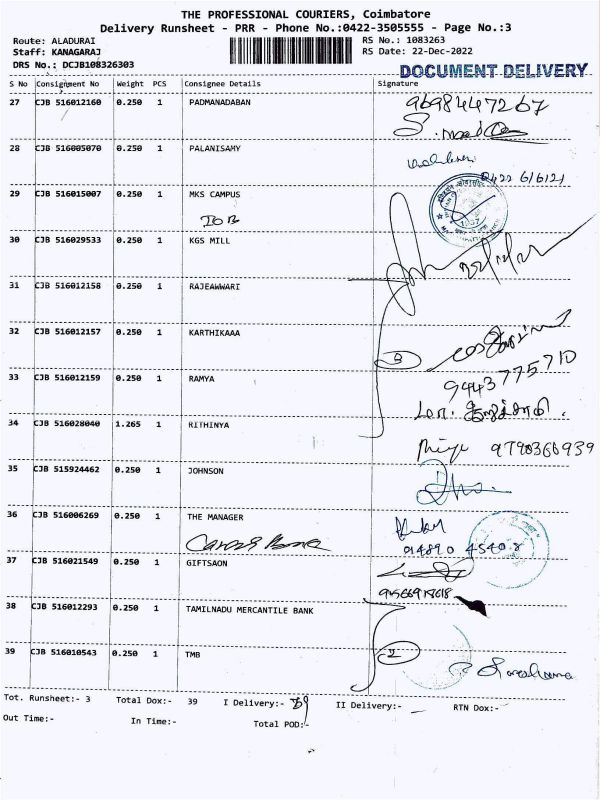 THE PROFESSIONAL COURIERS, Coimbatore
Delivery Runsheet - PRR - Phone No.:0422-3505555 - Page No.:3
Route: ALADURAI
RS No.: 1083263
Staff: KANAGARAJ
RS Date: 22-Dec-2022
DRS No.: DCJB108326303
DOCUMENT DELIVERY
S No Consignment No Weight PCS Consignee Details Signature
27 CJB 516012160 0.250 1 PADMANADABAN 9698447267
28 CJB 516005070 0.250 1 PALANISAMY
0422 616121
29 CJB 516015007 0.250 1 MKS CAMPUS
IOB
30 CJB 516029533 0.250 1 KGS MILL
31 CJB 516012158 0.250 1 RAJEAWWARI
32 CJB 516012157 0.250 1 KARTHIKAAA
33 CJB 516012159 0.250 1 RAMYA 9443775710
34 CJB 516028040 1.265 1 RITHINYA
9790366939
35 CJB 515924462 0.250 1 JOHNSON
36 CJB 516006269 0.250 1 THE MANAGER
37 CJB 516021549 0.250 1 GIFTSAON
38 CJB 516012293 0.250 1 TAMILNADU MERCANTILE BANK
39 CJB 516010543 0.250 1 TMB
Tot. Runsheet:- 3 Total Dox:- 39 I Delivery:- 39 II Delivery:- RTN Dox:-
Out Time:- In Time:- Total POD:-